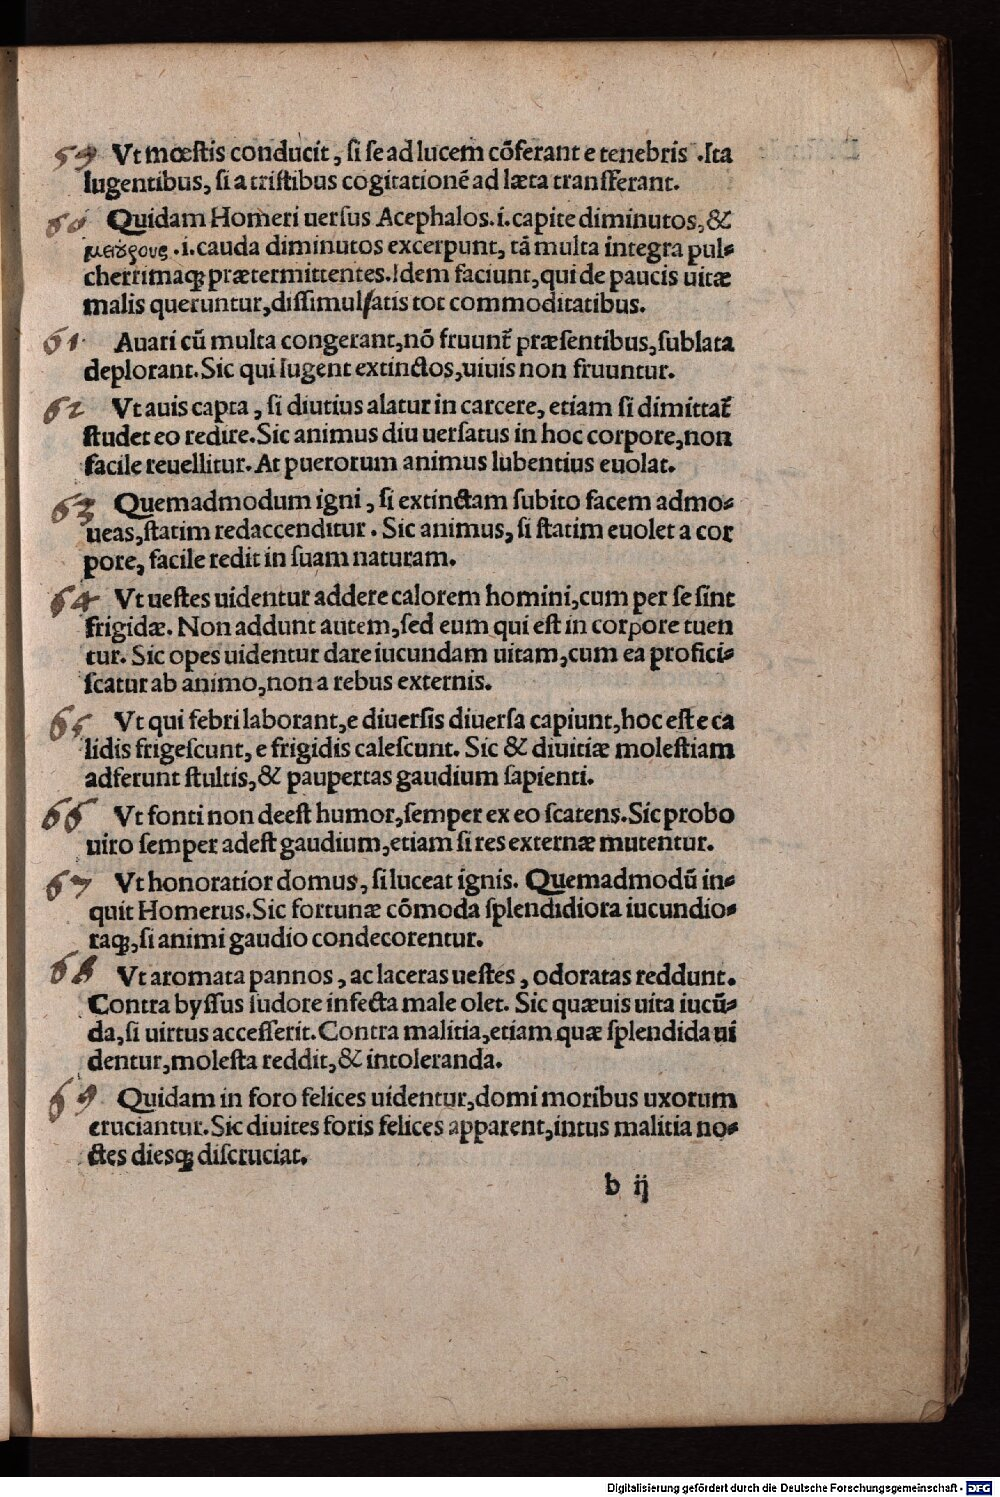 59 Vt mœstis conducit, si se ad lucem cõferant e tenebris. Ita
lugentibus, si a tristibus cogitationẽ ad læta transferant.
60 Quidam Homeri uersus Acephalos .i. capite diminutos, &
μειούρους .i. cauda diminutos excerpunt, tã multa integra pul-
cherrimaq; prætermittentes. Idem faciunt, qui de paucis uitæ
malis queruntur, dissimulatis tot commoditatibus.
61 Auari cũ multa congerant, nõ fruunt̃ præsentibus, sublata
deplorant. Sic qui lugent extinctos, uiuis non fruuntur.
62 Vt auis capta, si diutius alatur in carcere, etiam si dimittat̃
studet eo redire. Sic animus diu uersatus in hoc corpore, non
facile reuellitur. At puerorum animus lubentius euolat.
63 Quemadmodum igni, si extinctam subito facem admo-
ueas, statim redaccenditur. Sic animus, si statim euolet a cor
pore, facile redit in suam naturam.
64 Vt uestes uidentur addere calorem homini, cum per se sint
frigidæ. Non addunt autem, sed eum qui est in corpore tuen
tur. Sic opes uidentur dare iucundam uitam, cum ea profici-
scatur ab animo, non a rebus externis.
65 Vt qui febri laborant, e diuersis diuersa capiunt, hoc est e ca
lidis frigescunt, e frigidis calescunt. Sic & diuitiæ molestiam
adferunt stultis, & paupertas gaudium sapienti.
66 Vt fonti non deest humor, semper ex eo scatens. Sic probo
uiro semper adest gaudium, etiam si res externæ mutentur.
67 Vt honoratior domus, si luceat ignis. Quemadmodũ in-
quit Homerus. Sic fortunæ cõmoda splendidiora iucundio-
raq;, si animi gaudio condecorentur.
68 Vt aromata pannos, ac laceras uestes, odoratas reddunt.
Contra byssus sudore infecta male olet. Sic quæuis uita iucũ-
da, si uirtus accesserit. Contra malitia, etiam quæ splendida ui
dentur, molesta reddit, & intoleranda.
69 Quidam in foro felices uidentur, domi moribus uxorum
cruciantur. Sic diuites foris felices apparent, intus malitia no-
ctes diesq; discruciat.
b ij
Digitalisierung gefördert durch die Deutsche Forschungsgemeinschaft - DFG